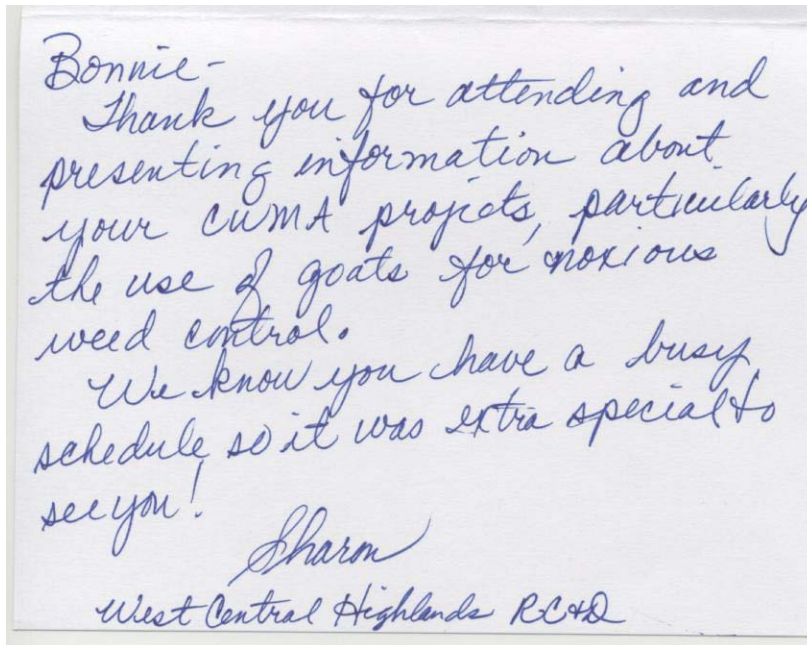 Bonnie-
Thank you for attending and
presenting information about
your CWMA projects, particularly
the use of goats for noxious
weed control.
We know you have a busy
schedule, so it was extra special to
see you!
Sharon
West Central Highlands RC&D